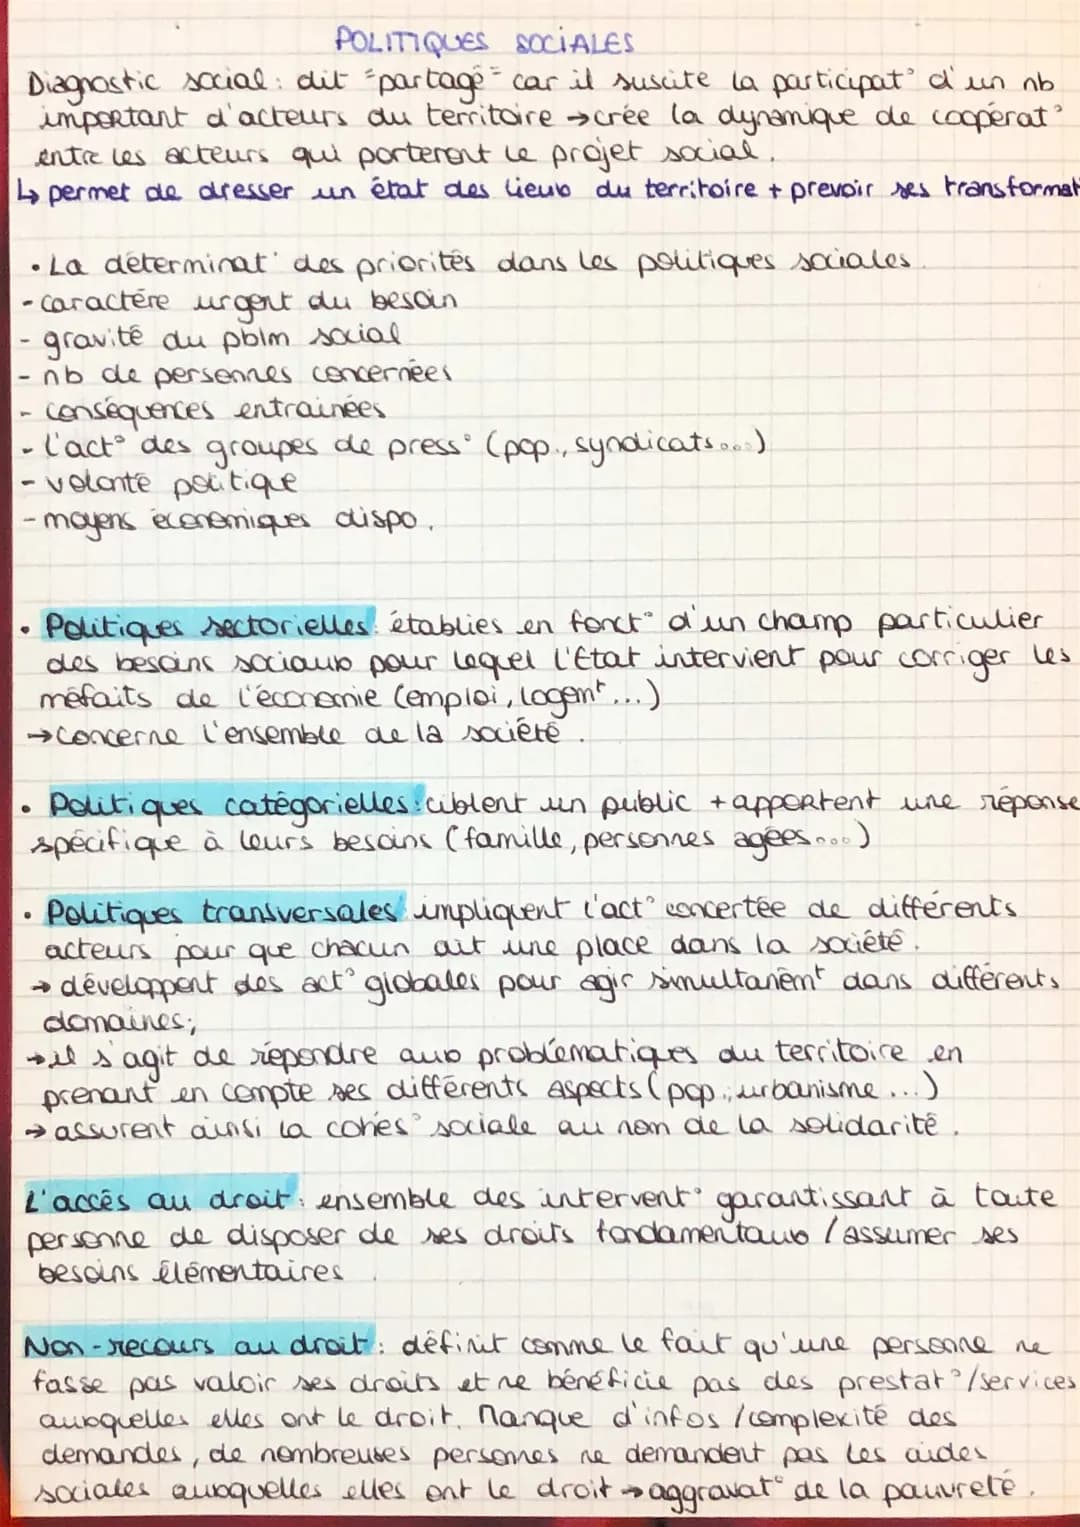 POLITIQUES SOCIALES
Diagnostic social : dit "partagé" car il suscite la participat° d'un nb
important d'acteurs du territoire → crée la dynamique de coopérat°
entre les acteurs qui porteront le projet social.
↳ permet de dresser un état des lieux du territoire + prevoir ses transformat
• La déterminat° des priorités dans les politiques sociales.
- caractère urgent du besoin
- gravité du pblm social
- nb de personnes concernées
- conséquences entrainées
- l'act° des groupes de press° (pop., syndicats...)
- volonté politique
- moyens économiques dispo.
• Politiques sectorielles : établies en fonct° d'un champ particulier
des besoins sociaux pour lequel l'Etat intervient pour corriger les
méfaits de l'économie (emploi, logemt...)
→ concerne l'ensemble de la société.
• Politiques catégorielles : ciblent un public + apportent une réponse
spécifique à leurs besoins (famille, personnes agées...)
• Politiques transversales : impliquent l'act° concertée de différents
acteurs pour que chacun ait une place dans la société.
→ développent des act° globales pour agir simultanémt dans différents
domaines;
→ il s'agit de répondre aux problématiques du territoire en
prenant en compte ses différents aspects (pop., urbanisme...)
→ assurent ainsi la cohés° sociale au nom de la solidarité.
L'accès au droit : ensemble des intervent° garantissant à toute
personne de disposer de ses droits fondamentaux / assumer ses
besoins élémentaires.
Non-recours au droit : définit comme le fait qu'une personne ne
fasse pas valoir ses droits et ne bénéficie pas des prestat°/services
auxquelles elles ont le droit. Manque d'infos / complexité des
demandes, de nombreuses personnes ne demandent pas les aides
sociales auxquelles elles ont le droit → aggravat° de la pauvreté.